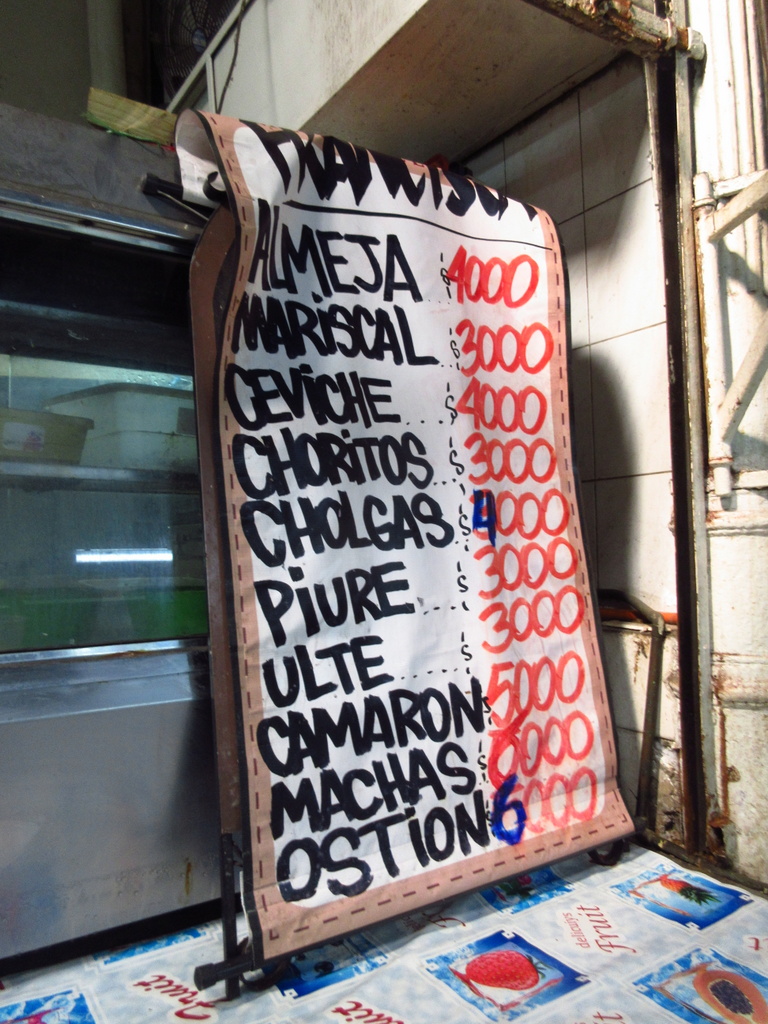 ALMEJA $4000
MARiSCAL $3000
CEViCHE $4000
CHORiTOS $3000
CHOLGAS $4000
PiURE $3000
ULTE $3000
CAMARON $5000
MACHAS $6000
OSTiON $6000
Fruit
delicuys
Fruit
Fruit